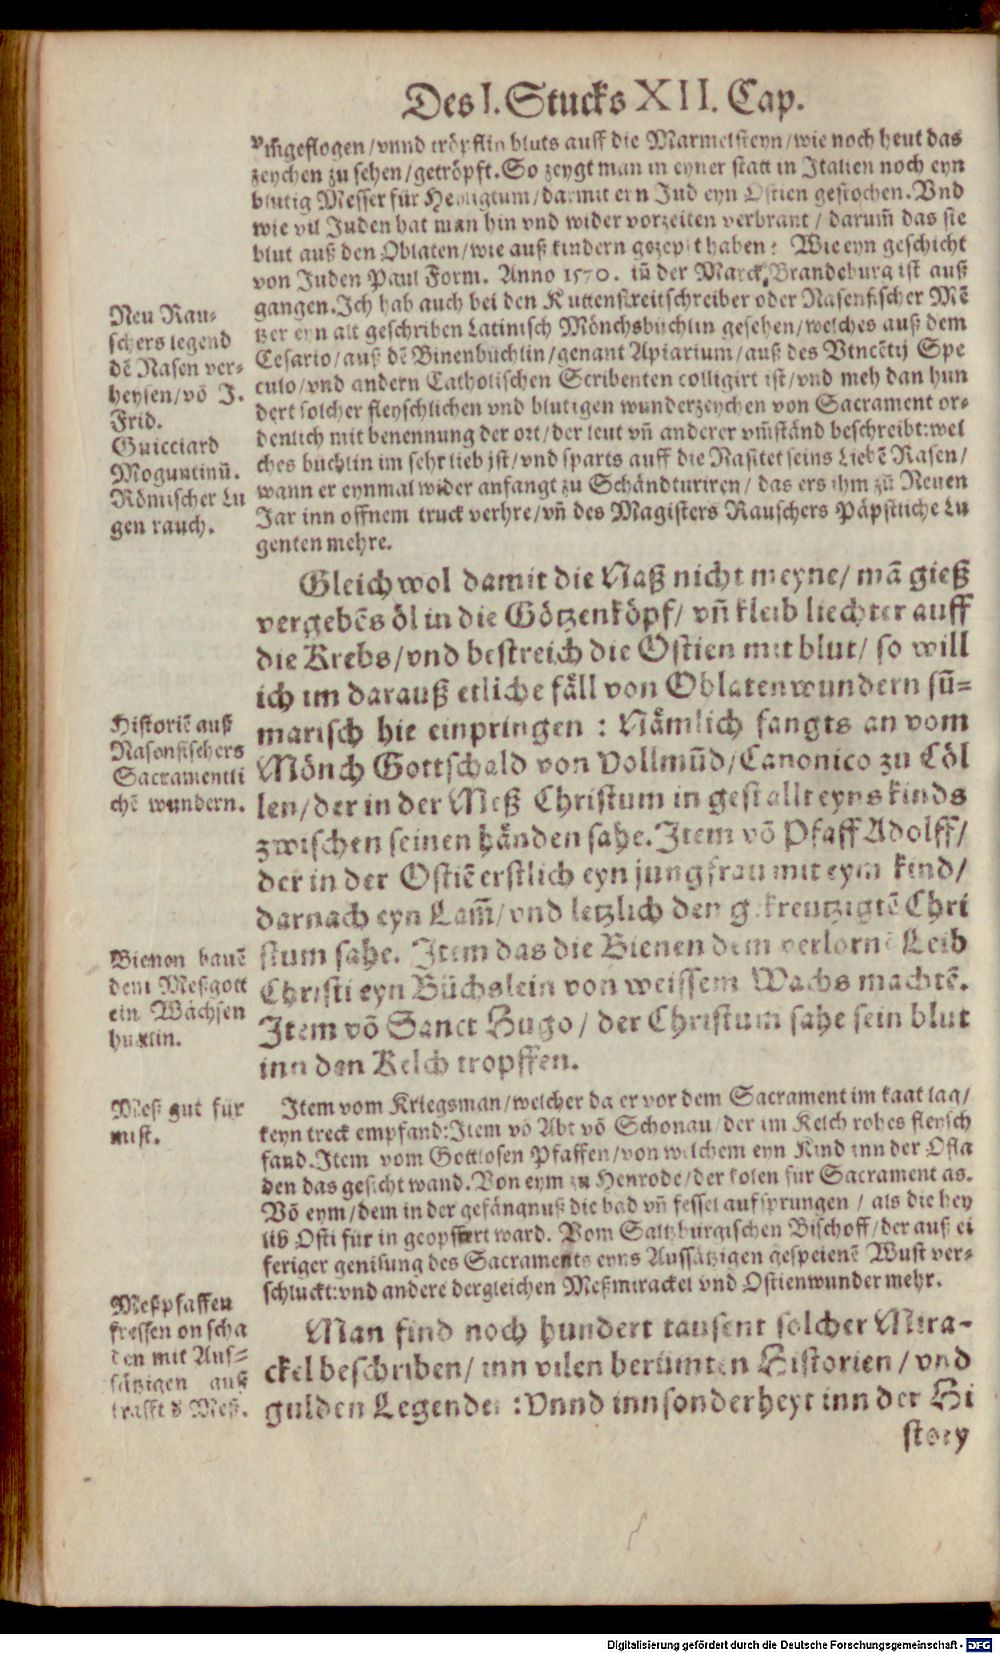 Des I. Stucks XII. Cap.
vm̃geflogen/vnnd tröpflin bluts auff die Marmelsteyn/wie noch heut das
zeychen zu sehen/getröpft. So zeygt man in eyner statt in Italien noch eyn
blutig Messer für Heyligtum/darmit ern Jud eyn Ostien gestochen. Vnd
wie vil Juden hat man hin vnd wider vorzeiten verbrant/ darum̃ das sie
blut auß den Oblaten/wie auß kindern gezepft haben? Wie eyn geschicht
von Juden Paul Form. Anno 1570. iñ der Marck Brandeburg ist auß
gangen. Ich hab auch bei den Kuttenstreitschreiber oder Nasenfischer Mē
tzer eyn alt geschriben Latinisch Mönchsbüchlin gesehen/welches auß dem
Cesario/auß dē Binenbüchlin/genant Apiarium/auß des Vincētij Spe
culo/vnd andern Catholischen Scribenten colligirt ist/vnd meh dan hun
dert solcher fleyschlichen vnd blutigen wunderzeychen von Sacrament or-
denlich mit benennung der ort/der leut vñ anderer vm̃ständ beschreibt: wel
ches büchlin im sehr lieb jst/vnd sparts auff die Nasitet seins Liebē Nasen/
wann er eynmal wider anfangt zu Schändturiren/ das ers ihm zũ Neuen
Jar inn offnem truck verhre/vñ des Magisters Rauschers Päpstliche Lu
genten mehre.
Neu Rau-
schers legend
dē Nasen ver-
heysen/vō J.
Frid.
Guicciard
Moguntinũ.
Römischer Lu
gen rauch.
Gleichwol damit die Naß nicht meyne/ mā gieß
vergebēs öl in die Götzenköpf/ vñ kleib liechter auff
die Krebs/vnd bestreich die Ostien mit blut/ so will
ich im darauß etliche fäll von Oblatenwundern sũ-
marisch hie einpringen : Nämlich fangts an vom
Mönch Gottschald von Vollmũd/Canonico zu Cöl
len/der in der Meß Christum in gestallt eyns kinds
zwischen seinen händen sahe. Item vō Pfaff Adolff/
der in der Ostiē erstlich eyn jungfrau mit eym kind/
darnach eyn Lam̃/vnd letzlich den gekreutzigtē Chri
stum sahe. Item das die Bienen dem verlornē Leib
Christi eyn Büchslein von weissem Wachs machtē.
Item vō Sanct Hugo/ der Christum sahe sein blut
inn den Kelch tropffen.
Historiē auß
Nasenfischers
Sacramentli
chē wundern.
Bienen bauē
dem Meßgott
ein Wächsen
häußlin.
Item vom Kriegsman/welcher da er vor dem Sacrament im kaat lag/
keyn treck empfand: Item vō Abt vō Schonau/der im Kelch rohes fleysch
fand. Item vom Gottlosen Pfaffen/von welchem eyn Kind inn der Osta
den das gesicht wand. Von eym zu Henrode/der kolen für Sacrament as.
Vō eym/dem in der gefängnuß die bad vñ fessel aufsprungen / als die hey
lig Osti für in geopffert ward. Vom Saltzburgischen Bischoff/der auß ei
feriger genisung des Sacraments eyns Aussätzigen gespeienē Wust ver-
schluckt: vnd andere dergleichen Meßmirackel vnd Ostienwunder mehr.
Meß gut für
mist.
Man find noch hundert tausent solcher Mira-
ckel beschriben/ inn vilen berümten Historien/ vnd
gulden Legenden : Vnnd innsonderheyt inn der Hi
Meßpfaffen
fressen on scha
den mit Aus-
sätzigen auß
krafft d Meß.
story
Digitalisierung gefördert durch die Deutsche Forschungsgemeinschaft - DFG